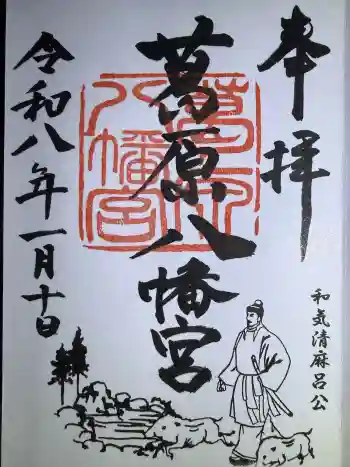 奉拝
葛原八幡宮
令和八年一月十日
和気清麻呂公